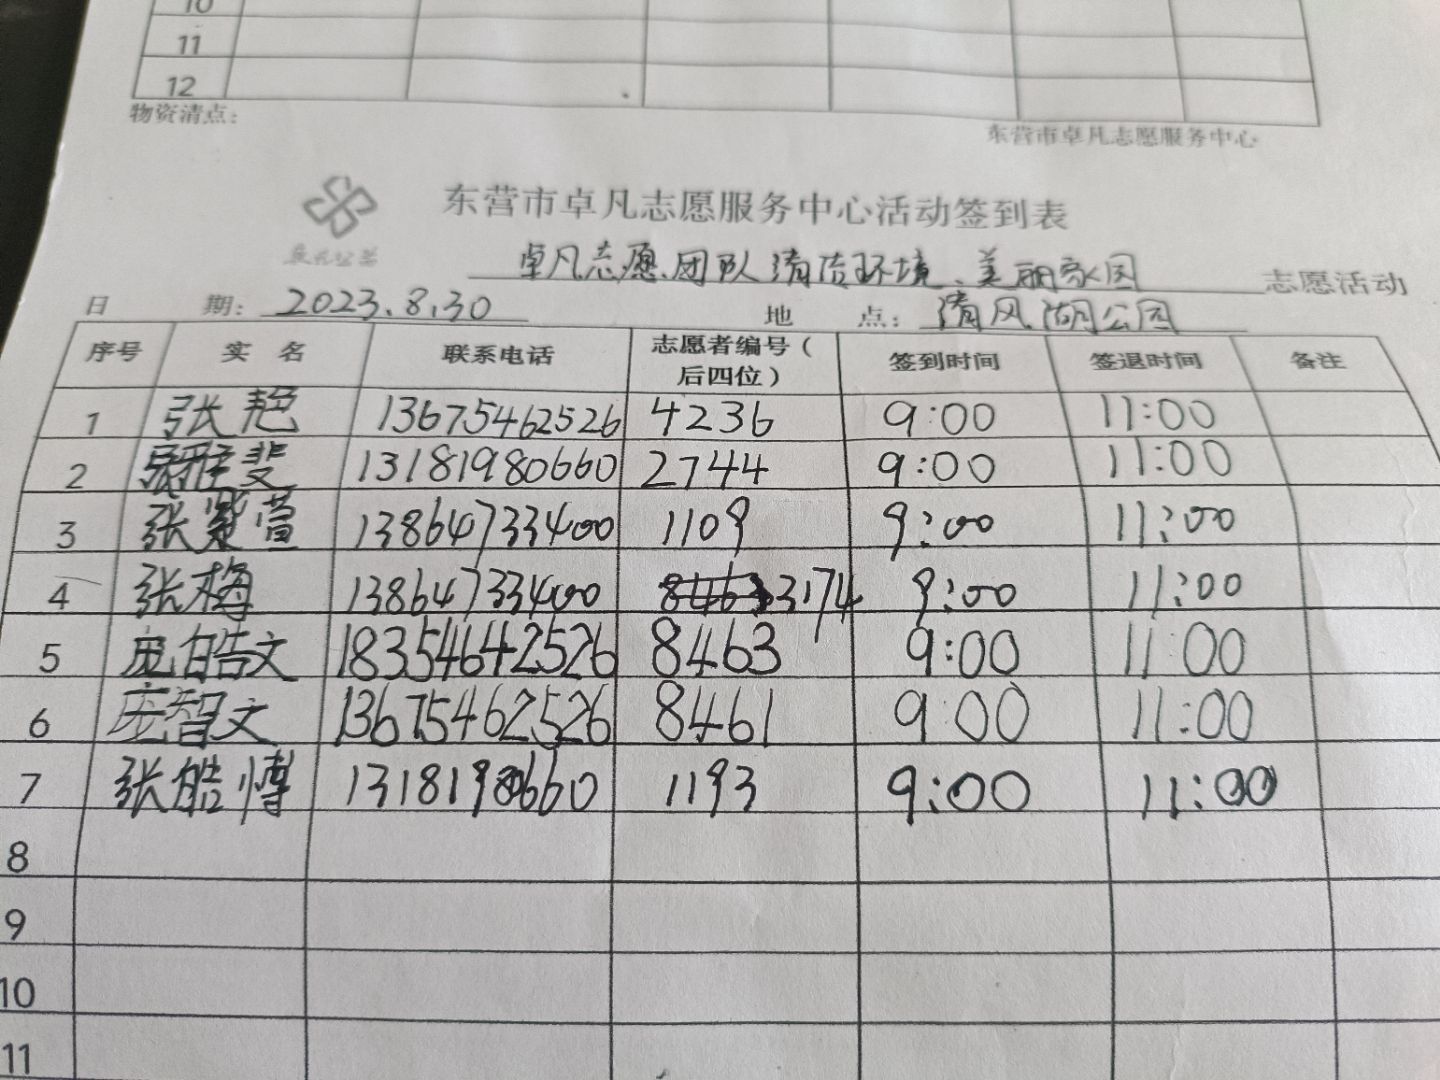 10
11
12
物资清点：
东营市卓凡志愿服务中心
东营市卓凡志愿服务中心活动签到表
卓凡公益
卓凡志愿团队清洁环境、美丽家园 志愿活动
日 期： 2023.8.30 地 点： 清风湖公园
序号 实 名 联系电话 志愿者编号（后四位） 签到时间 签退时间 备注
1 张艳 13675462526 4236 9:00 11:00
2 斐 13181980660 2744 9:00 11:00
3 张紫萱 13864733400 1109 9:00 11:00
4 张梅 13864733400 3174 9:00 11:00
5 庞皓文 18354642526 8463 9:00 11:00
6 庞智文 13675462526 8461 9:00 11:00
7 张皓博 13181980660 1193 9:00 11:00
8
9
10
11